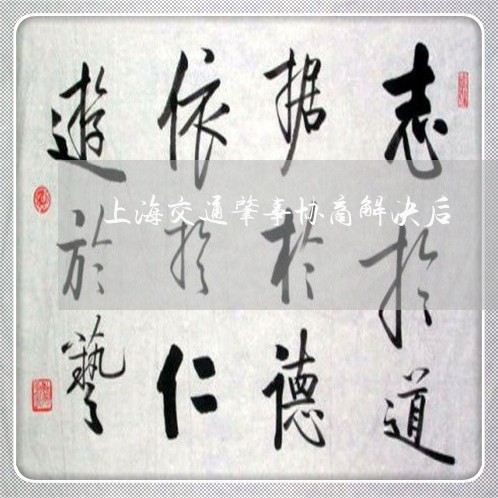 志於道
据於德
依於仁
遊於藝
上海交通肇事协商解决后